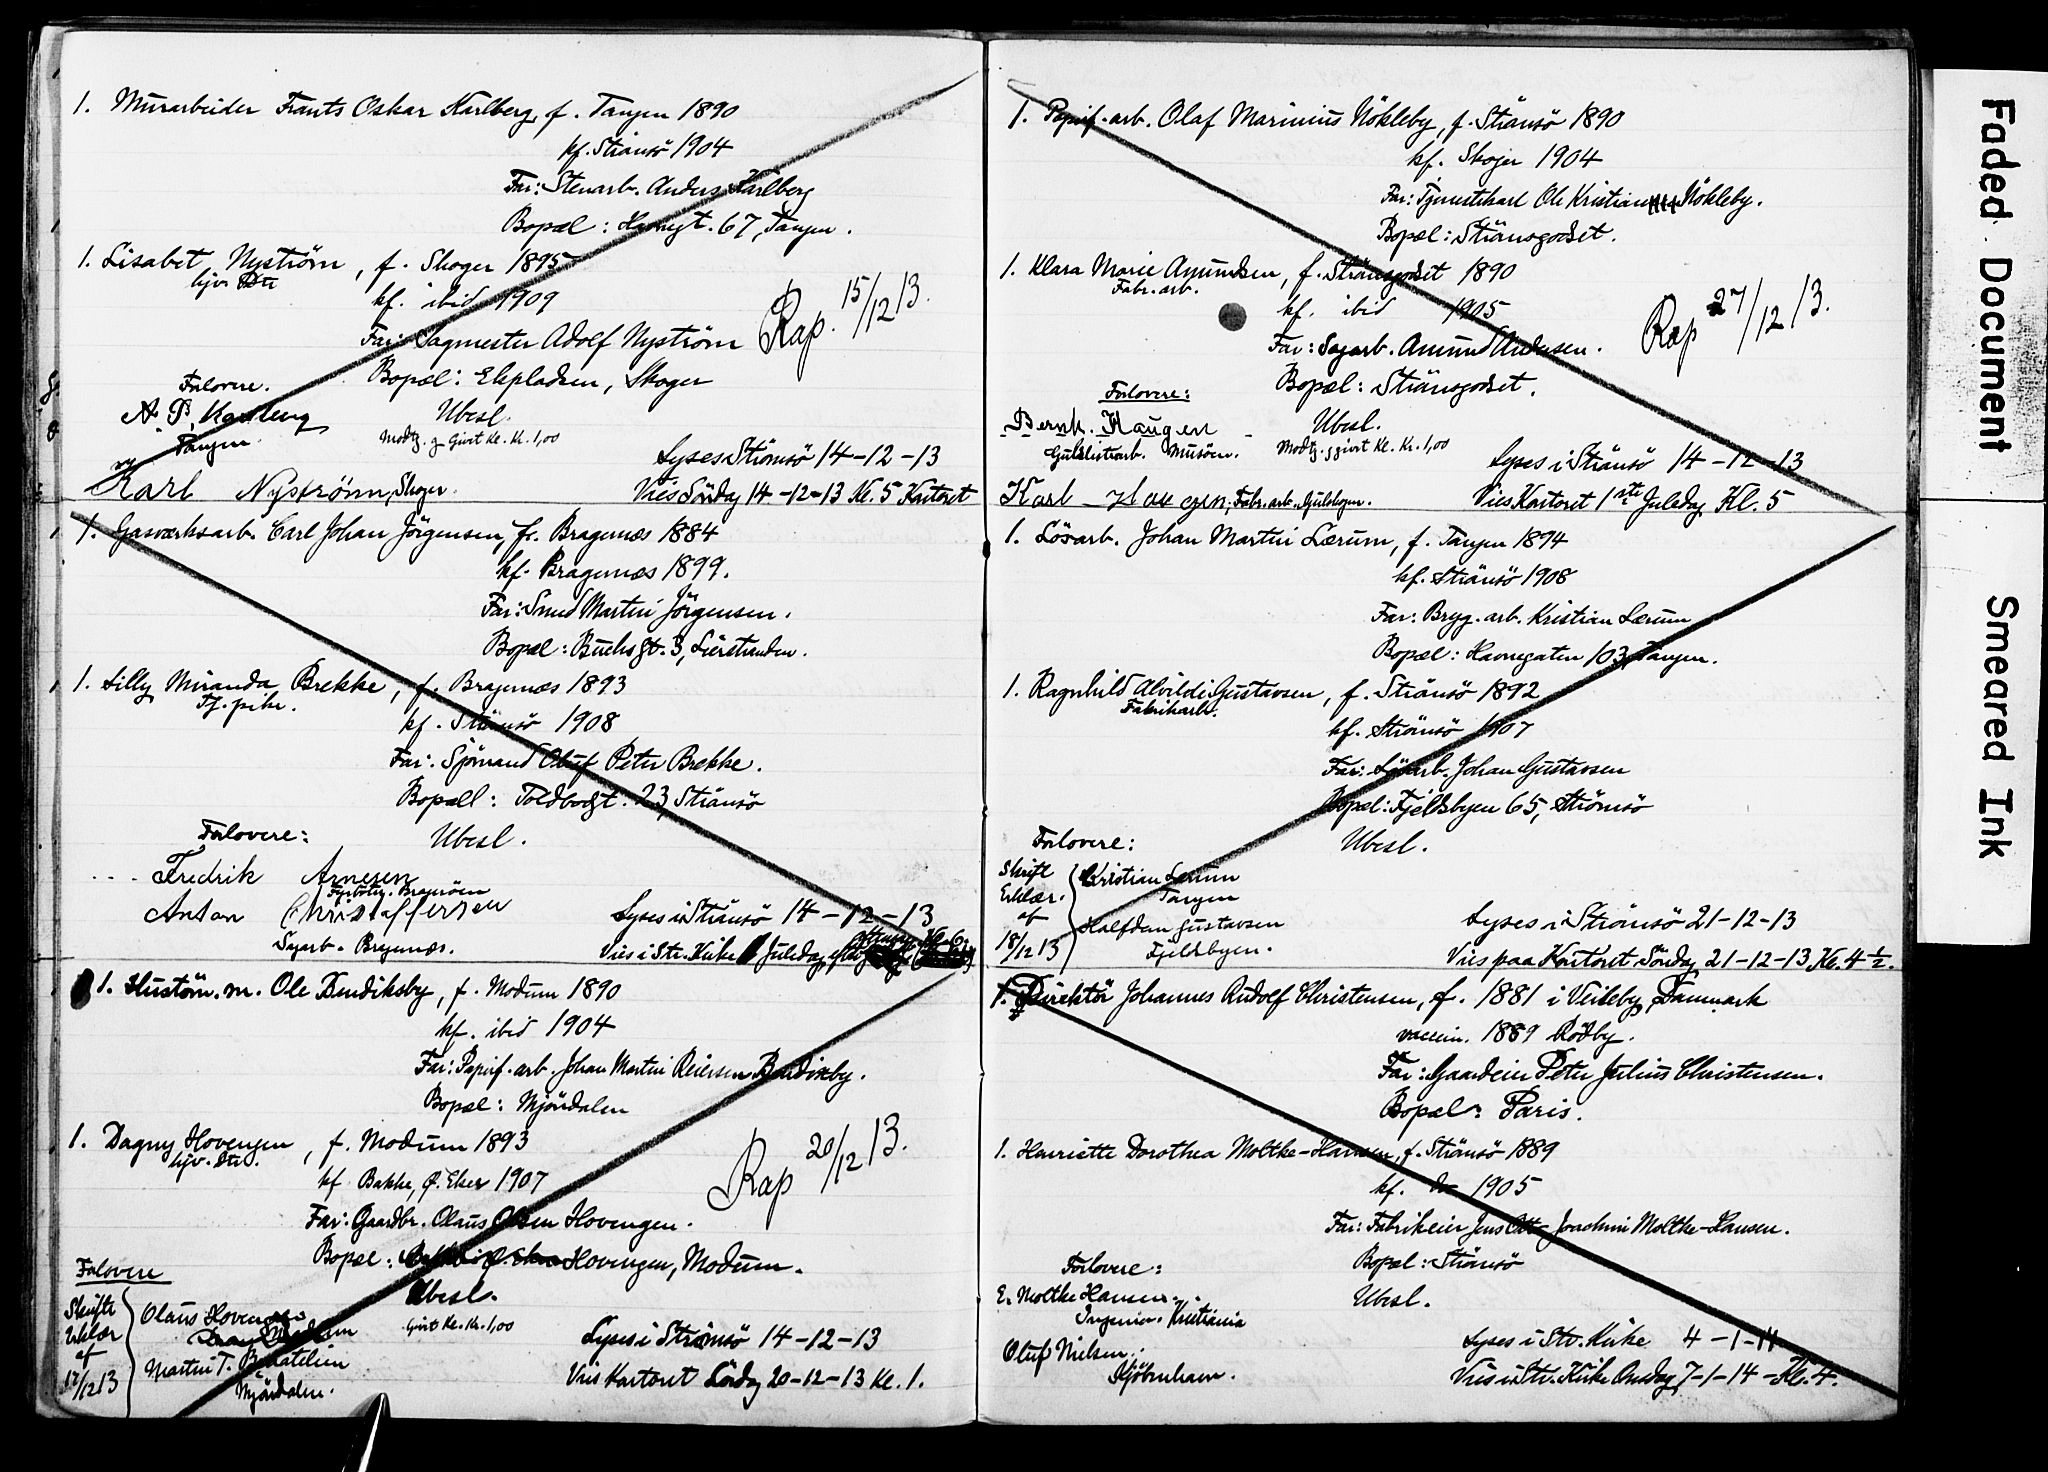 1. Murarbeider Frants Oskar Karlberg, f. Tangen 1890
kf. Strömsö 1904
Far: Stenarb. Anders Karlberg
Bopæl: Havnegt. 67, Tangen.
1. Lisabet Nyström, f. Skoger 1895
hjv. Dtr
kf. ibid 1909
Far: Sagmester Adolf Nyström
Rap. 15/12 13.
Bopæl: Ekpladsen, Skoger
Forlovere.
A. P. Karlberg
Tangen
Ubesl.
Modtg. g Givet Kl. Kr. 1,00
Lyses i Strömsö 14-12-13
Karl Nyström, Skoger.
Vies Söndag 14-12-13 Kl. 5 Kontoret
1. Gasværksarb. Carl Johan Jörgensen, f. Bragernæs 1884
kf. Bragernæs 1899.
Far: Smed Martin Jörgensen.
Bopæl: Buchs gt. 3, Lierstranden.
1. Lilly Miranda Brekke, f. Bragernæs 1893
Tj. pike.
kf. Strömsö 1908
Far: Sjömand Oluf Peter Brekke.
Bopæll: Toldbodgt. 23, Strömsö
Forlovere:
Ubesl.
Fredrik Arnesen
Fyrböter. Brageröen
Anton Christoffersen
Sagarb. Bragernæs.
Lyses i Strömsö 14-12-13
Vies i Str. Kirke Juledag efter
1. Hustöm. m. Ole Bendiksby, f. Modum 1890
kf. ibid 1904
Far: Papirf. arb. Johan Martin Reiersen Bendiksby.
Bopæl: Mjöndalen
1. Dagny Hovengen, f. Modum 1893
hjv. Dtr.
kf Bakke, Ø. Eker 1907
Rap 20/12 13.
Far: Gaardbr. Olaus Olsen Hovengen.
Bopæl: Hovengen, Modum.
Forlovere
Ubesl.
Givet Kl. Kr. 1,00
Skriftl Erklær af 17/12 13
Olaus Hovengen
Modum
Martin T.
Mjöndalen.
Lyses i Strömsö 14-12-13
Vies Kontoret Lördag 20-12-13 Kl. 1.
1. Papirf. arb. Olaf Marinius Nökleby, f. Strömsö 1890
kf. Skoger 1904
Far: Tjenestekarl Ole Kristian Nökleby.
Bopæl: Strömsgodset.
1. Klara Marie Amundsen, f. Strömsgodset 1890
Fabr. arb.
kf. ibid 1905
Rap 27/12 13.
Far: Sagarb. Amund Andersen.
Bopæl: Strömsgodset.
Forlovere:
Bernh. Haugen
Guldlistarb. Musöen.
Ubesl.
Modtg. g givet Kl. Kr. 1,00
Lyses i Strömsö 14-12-13
Karl Haugen, Fabr. arb. Gulskogen.
Vies Kontoret 1ste Juledag Kl. 5
1. Lösarb. Johan Martin Lærum, f. Tangen 1894
kf. Strömsö 1908
Far: Bryg. arb. Kristian Lærum
Bopæl: Havnegaten 103, Tangen.
1. Ragnhild Alvilde Gustavsen, f. Strömsö 1892
Fabrikarb.
kf. Strömsö 1907
Far: Lösarb. Johan Gustavsen
Bopæl: Fjeldsbyen 65, Strömsö
Forlovere:
Ubesl.
Skriftl Erklær. af 18/12 13
Kristian Lærum
Tangen
Halfdan Gustavsen
Fjeldsbyen.
Lyses i Strömsö 21-12-13
Vies paa Kontoret Söndag 21-12-13 Kl. 4 1/2.
1. Direktör Johannes Rudolf Christensen, f. 1881 i Veileby, Danmark
vaccin. 1889 Rödby.
Far: Gaardeier Peter Julius Christensen.
Bopæl: Paris.
1. Henriette Dorothea Moltke-Hansen, f. Strömsö 1889
kf. do 1905
Far: Fabrikeier Jens Otto Joachim Moltke-Hansen.
Bopæl: Strömsö
Forlovere:
Ubesl.
E. Moltke Hansen.
Ingeniör. Kristiania
Oluf Nielsen.
Kjöbenhavn.
Lyses i Str. Kirke 4-1-14
Vies i Str. Kirke Onsdag 7-1-14 - Kl. 4.
Faded Document
Smeared Ink